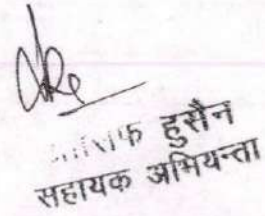 हुसैन
सहायक अभियन्ता